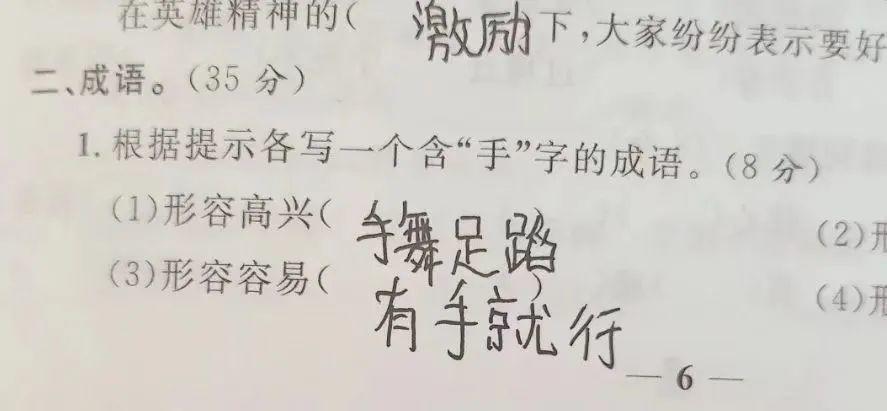 在英雄精神的(激励下,大家纷纷表示要好
二、成语。(35 分)
1. 根据提示各写一个含“手”字的成语。(8 分)
(1)形容高兴(手舞足蹈) (2)形
(3)形容容易(有手就行) (4)形
— 6 —